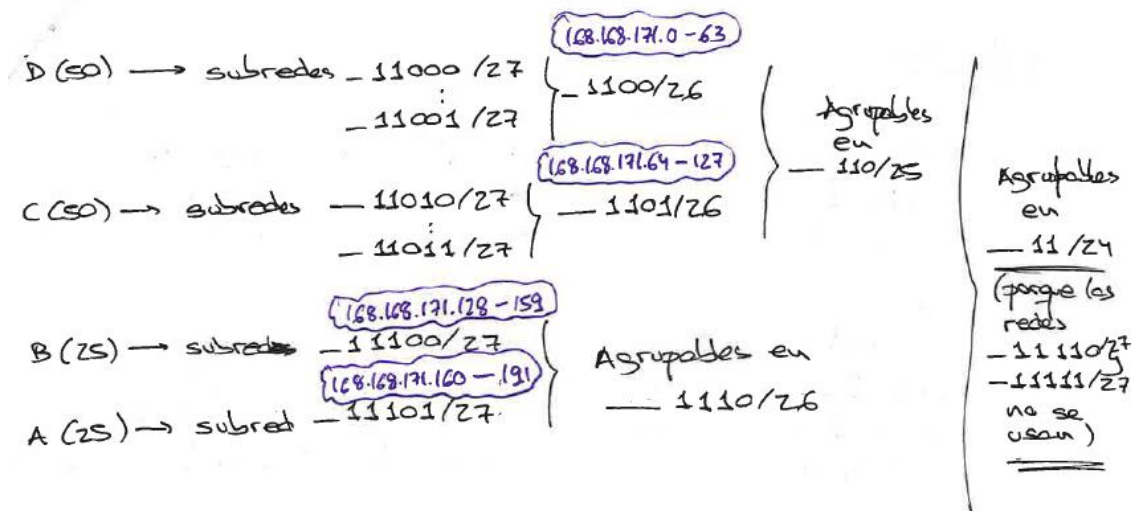 168.168.171.0 - 63
D (50) → subredes _ 11000 /27
⋮
_ 11001 /27
_ 1100/26
168.168.171.64 - 127
C (50) → subredes _ 11010/27
⋮
_ 11011 /27
_ 1101/26
Agrupables
en
_ 110/25
168.168.171.128 - 159
B (25) → subredes _ 11100/27
168.168.171.160 - 191
A (25) → subred _ 11101/27
Agrupables en
_ 1110/26
Agrupables
en
_ 11 /24
(porque las
redes
_ 11110/27 y
_ 11111/27
no se
usan)